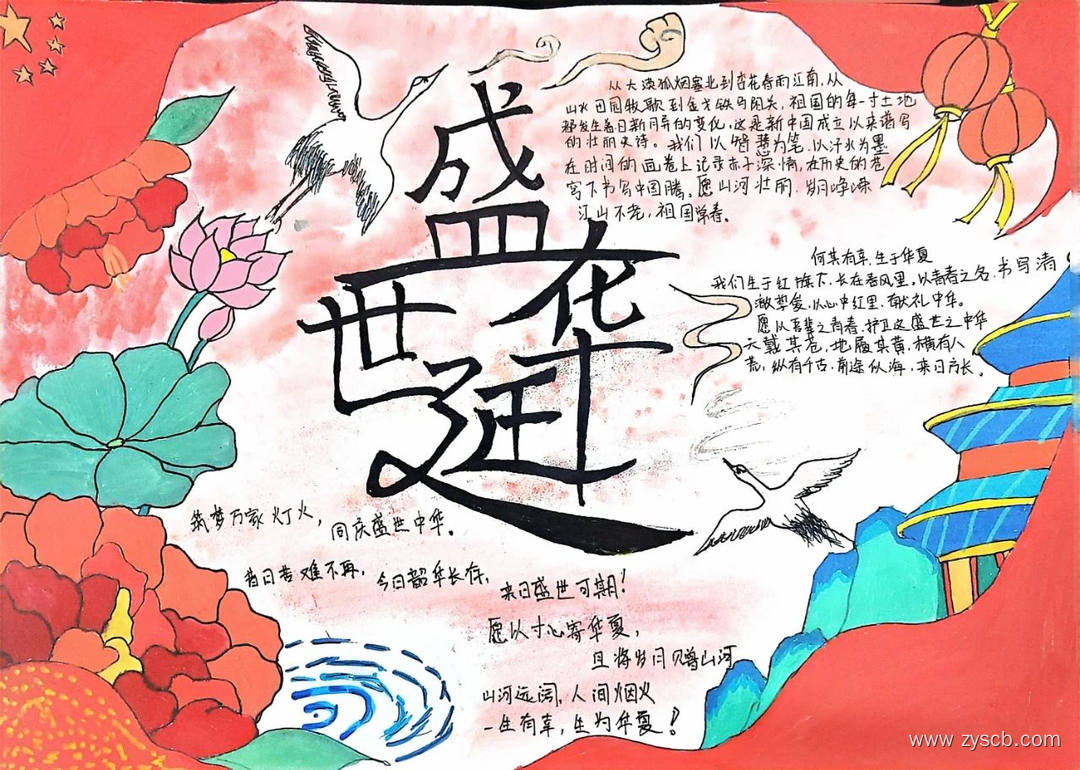 盛世华诞
从大漠孤烟塞北到杏花春雨江南,从
山水田园牧歌到金戈铁马阳关,祖国的每一寸土地
都发生着日新月异的变化,这是新中国成立以来谱写
的壮丽史诗。我们以智慧为笔,以汗水为墨
在时间的画卷上记录赤子深情,在历史的卷
写下书写中国腾,愿山河壮丽,岁月峥嵘
江山不老,祖国常春。
何其有幸,生于华夏
我们生于红旗下,长在春风里,以青春之名,书写清
澈挚爱,以心中红里,献礼中华。
愿以吾辈之青春,护卫这盛世之中华
天戴其苍,地履其黄,横有八
荒,纵有千古,前途似海,来日方长。
筑梦万家灯火,
同庆盛世中华。
昔日苦难不再,
今日韶华长存,
来日盛世可期!
愿以寸心寄华夏,
且将岁月赠山河
山河远阔,人间烟火
一生有幸,生为华夏!
www.zyscb.com